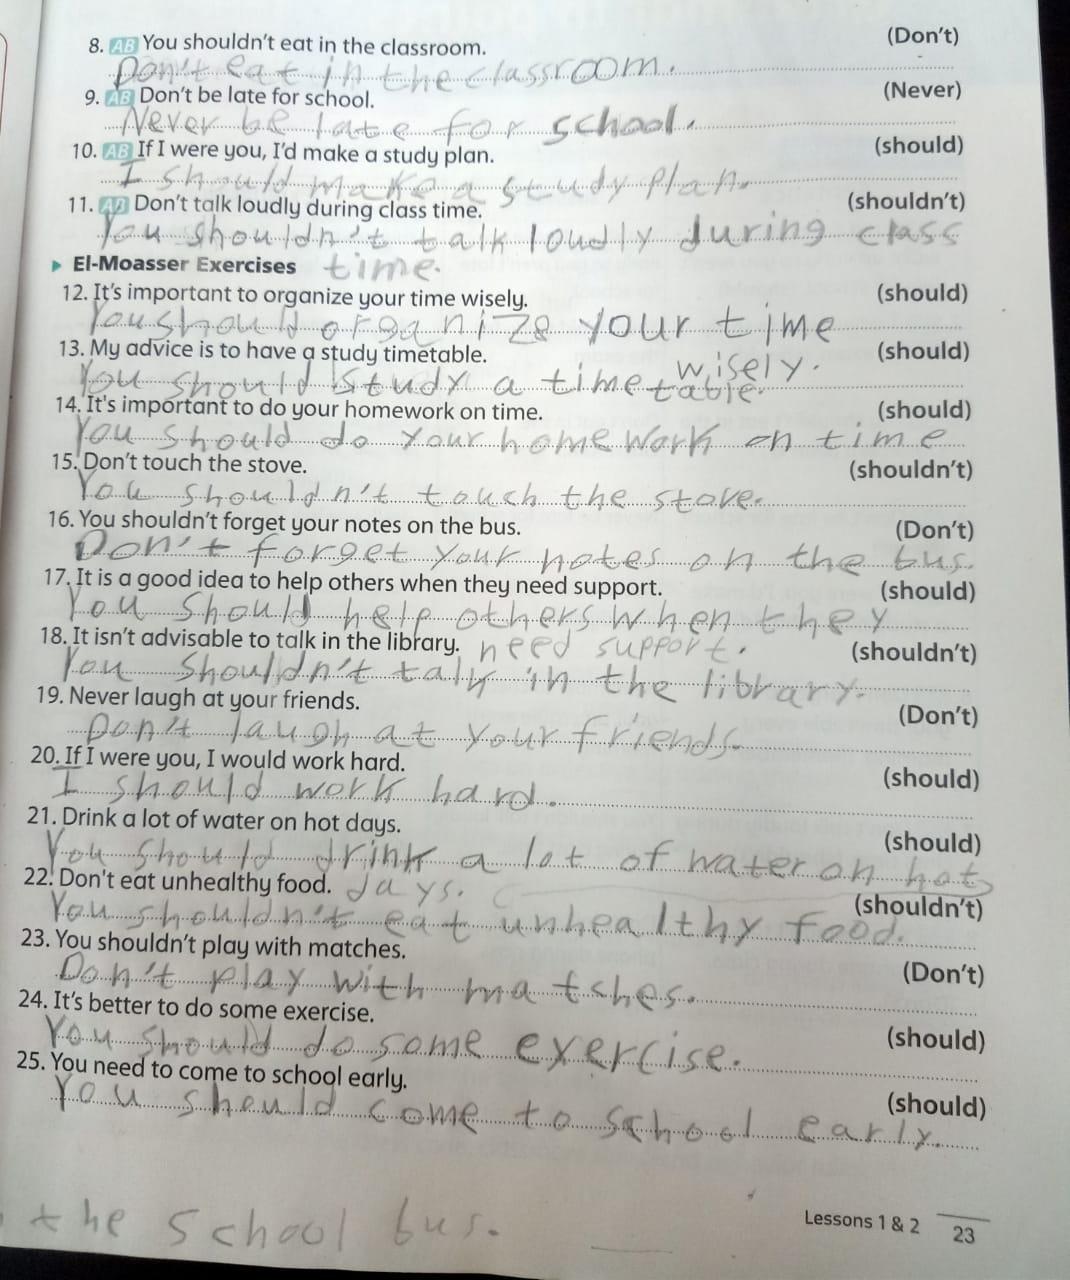 8. AB You shouldn't eat in the classroom. (Don't)
Don't eat in the classroom.
9. AB Don't be late for school. (Never)
Never be late for school.
10. AB If I were you, I'd make a study plan. (should)
I should make a study plan.
11. AB Don't talk loudly during class time. (shouldn't)
You shouldn't talk loudly during class
▸ El-Moasser Exercises time.
12. It's important to organize your time wisely. (should)
You should organize your time
13. My advice is to have a study timetable. (should)
wisely.
You should study a timetable.
14. It's important to do your homework on time. (should)
You should do your homework on time
15. Don't touch the stove. (shouldn't)
You shouldn't touch the stove.
16. You shouldn't forget your notes on the bus. (Don't)
Don't forget your notes on the bus.
17. It is a good idea to help others when they need support. (should)
You should help others when they
18. It isn't advisable to talk in the library. need support. (shouldn't)
You shouldn't talk in the library.
19. Never laugh at your friends. (Don't)
Don't laugh at your friends.
20. If I were you, I would work hard. (should)
I should work hard.
21. Drink a lot of water on hot days. (should)
You should drink a lot of water on hot
22. Don't eat unhealthy food. days. (shouldn't)
You shouldn't eat unhealthy food.
23. You shouldn't play with matches. (Don't)
Don't play with matshes.
24. It's better to do some exercise. (should)
You should do some exercise.
25. You need to come to school early. (should)
You should come to school early.
the school bus.
Lessons 1 & 2 23